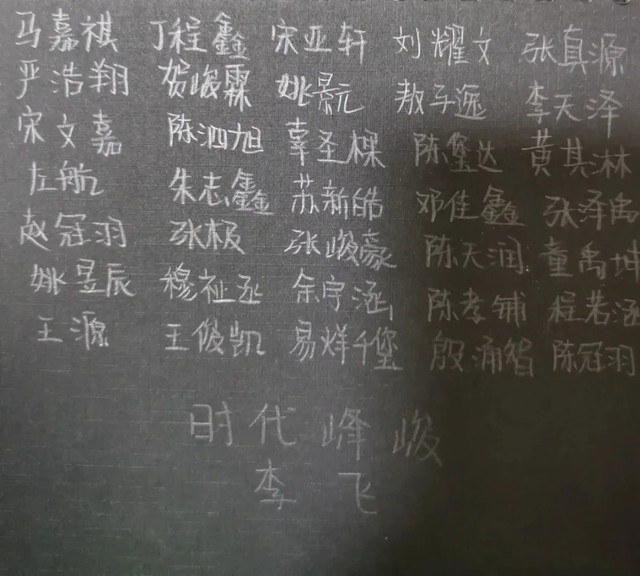 马嘉祺 丁程鑫 宋亚轩 刘耀文 张真源
严浩翔 贺峻霖 姚景元 敖子逸 李天泽
宋文嘉 陈泗旭 辜圣樑 陈玺达 黄其淋
左航 朱志鑫 苏新皓 邓佳鑫 张泽禹
赵冠羽 张极 张峻豪 陈天润 童禹坤
姚昱辰 穆祉丞 余宇涵 陈孝铺 程若涵
王源 王俊凯 易烊千玺 殷涌智 陈冠羽
时代峰峻
李飞